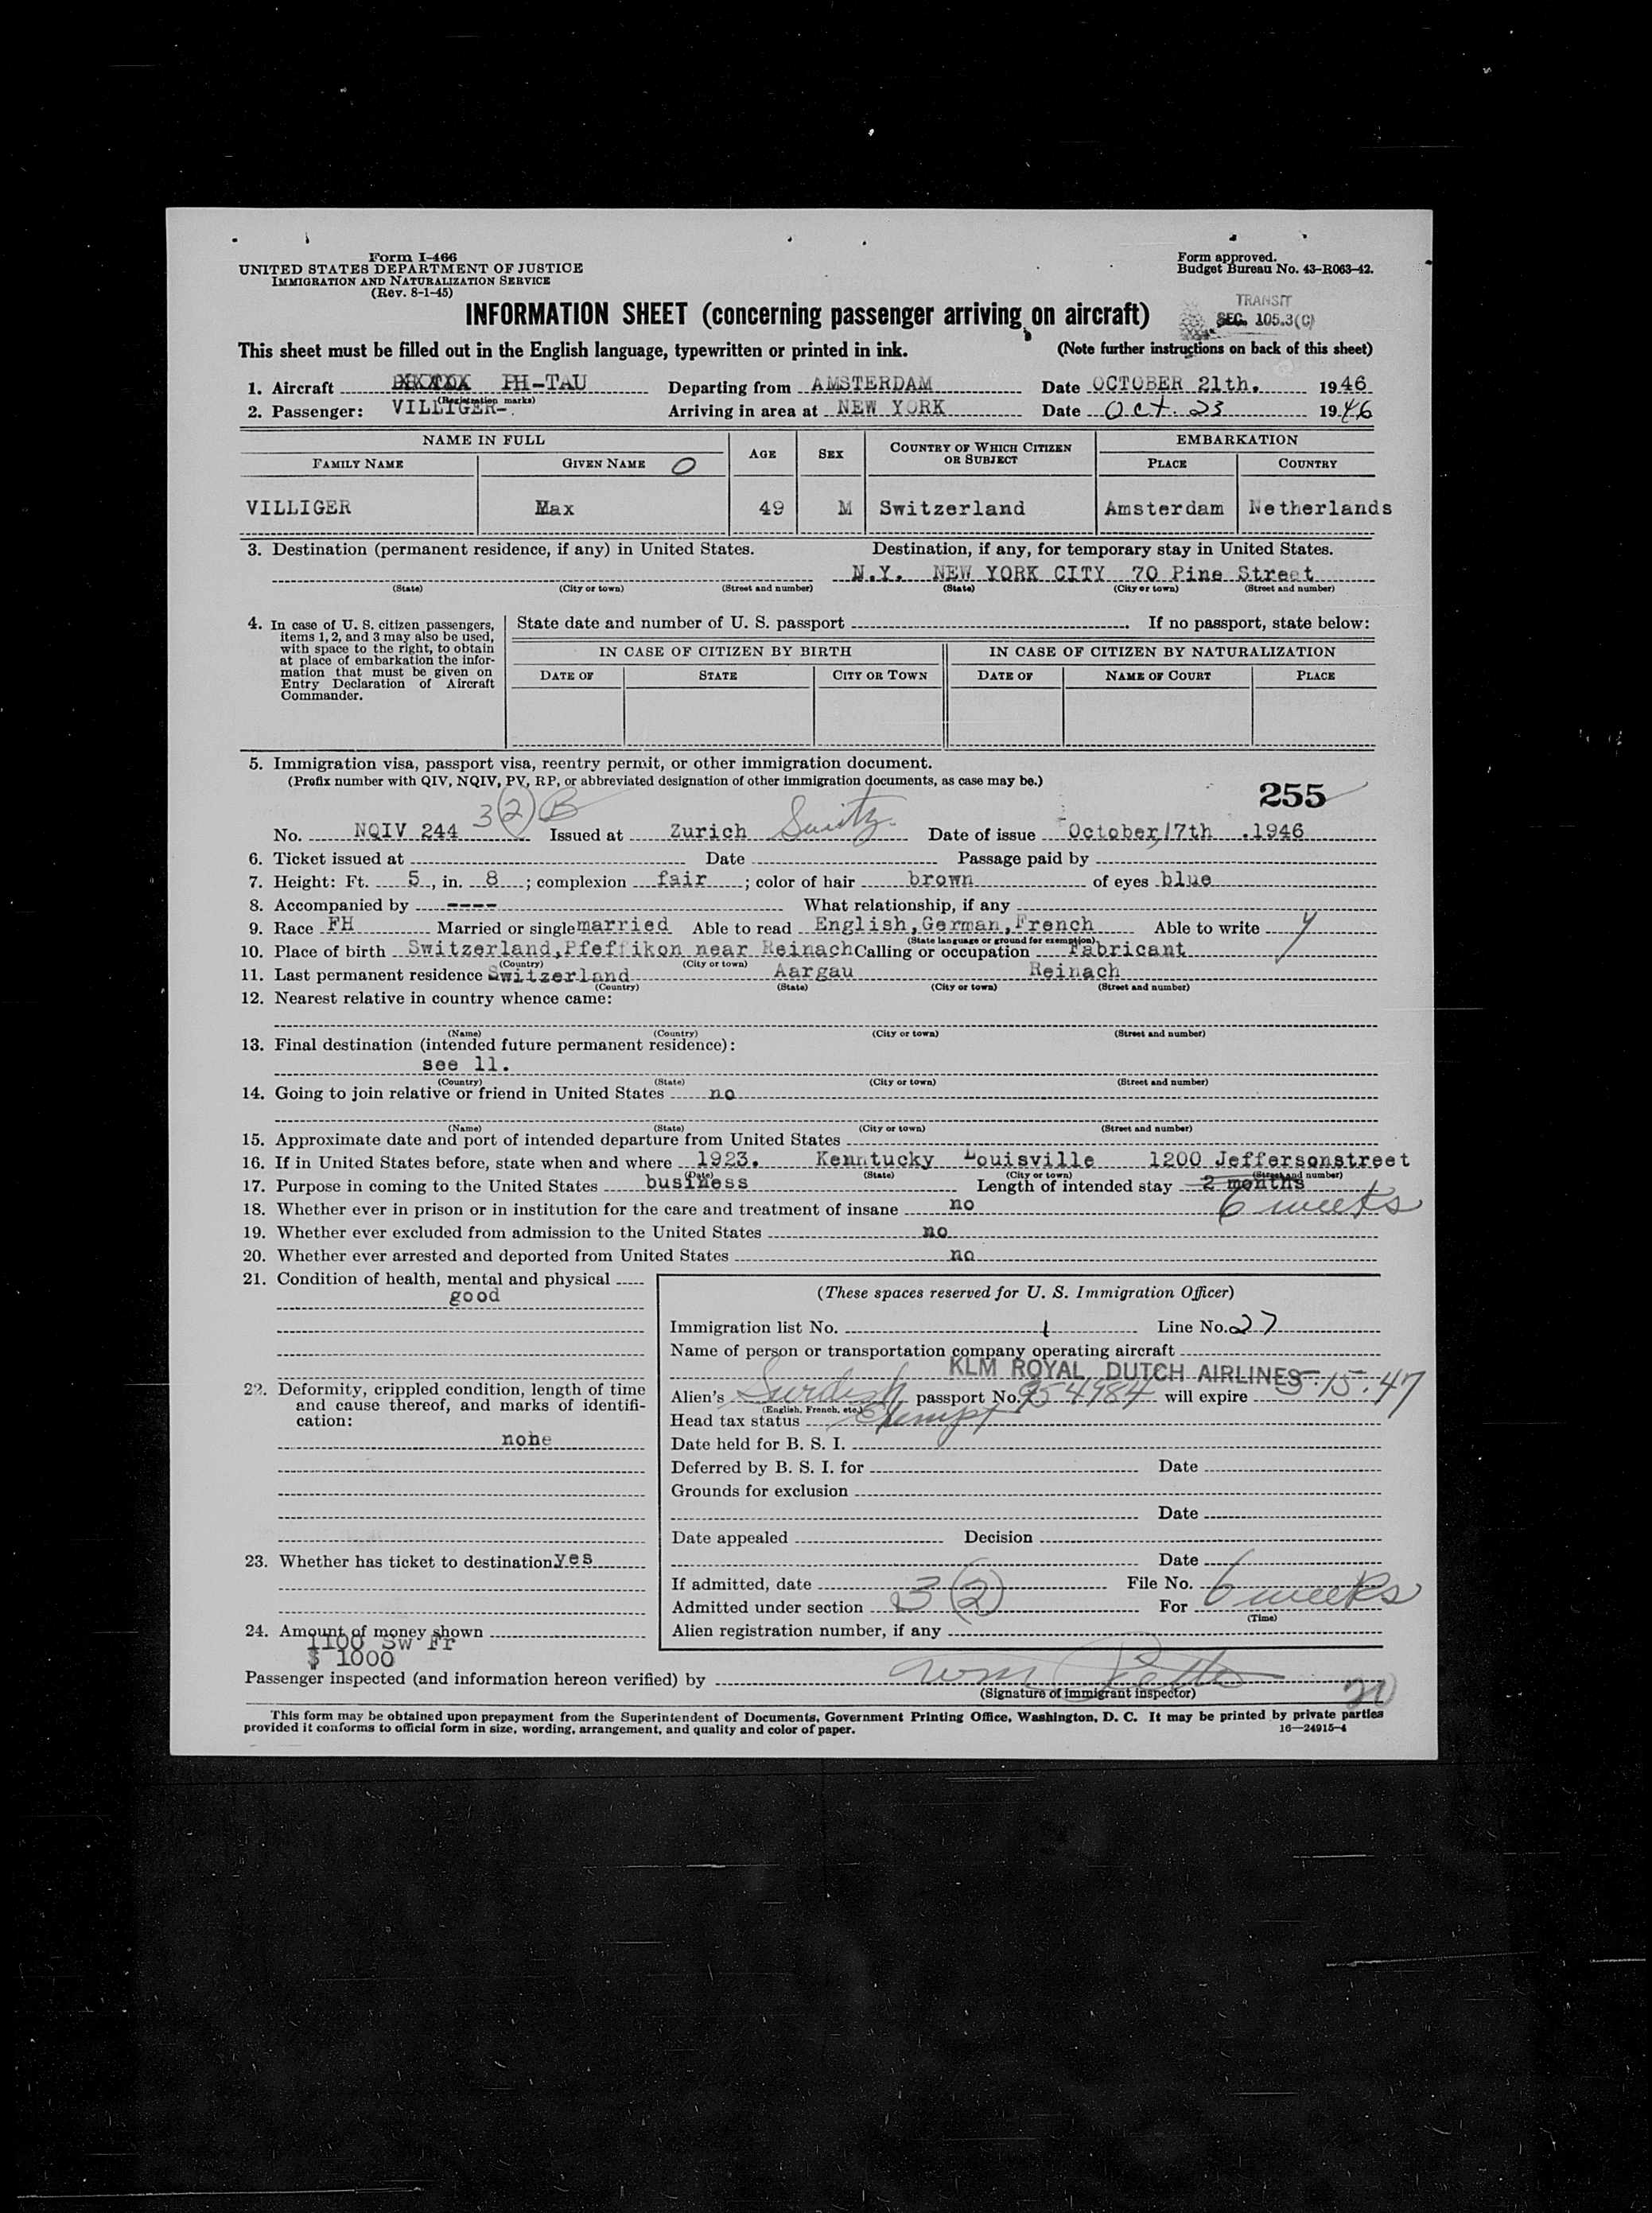 Form I-466
UNITED STATES DEPARTMENT OF JUSTICE
IMMIGRATION AND NATURALIZATION SERVICE
(Rev. 8-1-45)
Form approved.
Budget Bureau No. 43-R063-42.
INFORMATION SHEET (concerning passenger arriving on aircraft)
TRANSIT
SEC. 105.3(C)
This sheet must be filled out in the English language, typewritten or printed in ink. (Note further instructions on back of this sheet)
1. Aircraft PH-TAU Departing from AMSTERDAM Date OCTOBER 21th. 1946
(Registration marks)
2. Passenger: VILLIGER-. Arriving in area at NEW YORK Date Oct. 23 1946
NAME IN FULL AGE SEX COUNTRY OF WHICH CITIZEN OR SUBJECT EMBARKATION
FAMILY NAME GIVEN NAME O PLACE COUNTRY
VILLIGER Max 49 M Switzerland Amsterdam Netherlands
3. Destination (permanent residence, if any) in United States. Destination, if any, for temporary stay in United States.
N.Y. NEW YORK CITY 70 Pine Street
(State) (City or town) (Street and number) (State) (City or town) (Street and number)
4. In case of U. S. citizen passengers, items 1, 2, and 3 may also be used, with space to the right, to obtain at place of embarkation the information that must be given on Entry Declaration of Aircraft Commander.
State date and number of U. S. passport If no passport, state below:
IN CASE OF CITIZEN BY BIRTH IN CASE OF CITIZEN BY NATURALIZATION
DATE OF STATE CITY OR TOWN DATE OF NAME OF COURT PLACE
5. Immigration visa, passport visa, reentry permit, or other immigration document.
(Prefix number with QIV, NQIV, PV, RP, or abbreviated designation of other immigration documents, as case may be.)
255
3(2)B
No. NQIV 244 Issued at Zurich Switz. Date of issue October/7th .1946
6. Ticket issued at Date Passage paid by
7. Height: Ft. 5, in. 8; complexion fair; color of hair brown of eyes blue
8. Accompanied by ---- What relationship, if any
9. Race FH Married or single married Able to read English,German,French Able to write y
(State language or ground for exemption)
10. Place of birth Switzerland,Pfeffikon near Reinach Calling or occupation Fabricant
(Country) (City or town)
11. Last permanent residence Switzerland Aargau Reinach
(Country) (State) (City or town) (Street and number)
12. Nearest relative in country whence came:
(Name) (Country) (City or town) (Street and number)
13. Final destination (intended future permanent residence):
see 11.
(Country) (State) (City or town) (Street and number)
14. Going to join relative or friend in United States no
(Name) (State) (City or town) (Street and number)
15. Approximate date and port of intended departure from United States
16. If in United States before, state when and where 1923. Kenntucky Louisville 1200 Jeffersonstreet
(Date) (State) (City or town) (Street and number)
17. Purpose in coming to the United States business Length of intended stay 2 months
6 weeks
18. Whether ever in prison or in institution for the care and treatment of insane no
19. Whether ever excluded from admission to the United States no
20. Whether ever arrested and deported from United States no
21. Condition of health, mental and physical
good
22. Deformity, crippled condition, length of time and cause thereof, and marks of identification:
none
23. Whether has ticket to destination yes
24. Amount of money shown
1100 Sw Fr
$ 1000
(These spaces reserved for U. S. Immigration Officer)
Immigration list No. 1 Line No. 27
Name of person or transportation company operating aircraft
KLM ROYAL DUTCH AIRLINES
5.15.47
Alien's passport No. 954984 will expire
(English, French, etc.)
Head tax status Exempt
Date held for B. S. I.
Deferred by B. S. I. for Date
Grounds for exclusion
Date
Date appealed Decision
Date
If admitted, date File No.
Admitted under section 3(2) For 6 weeks
(Time)
Alien registration number, if any
Passenger inspected (and information hereon verified) by
(Signature of immigrant inspector)
20
This form may be obtained upon prepayment from the Superintendent of Documents, Government Printing Office, Washington, D. C. It may be printed by private parties
provided it conforms to official form in size, wording, arrangement, and quality and color of paper. 16—24915-4